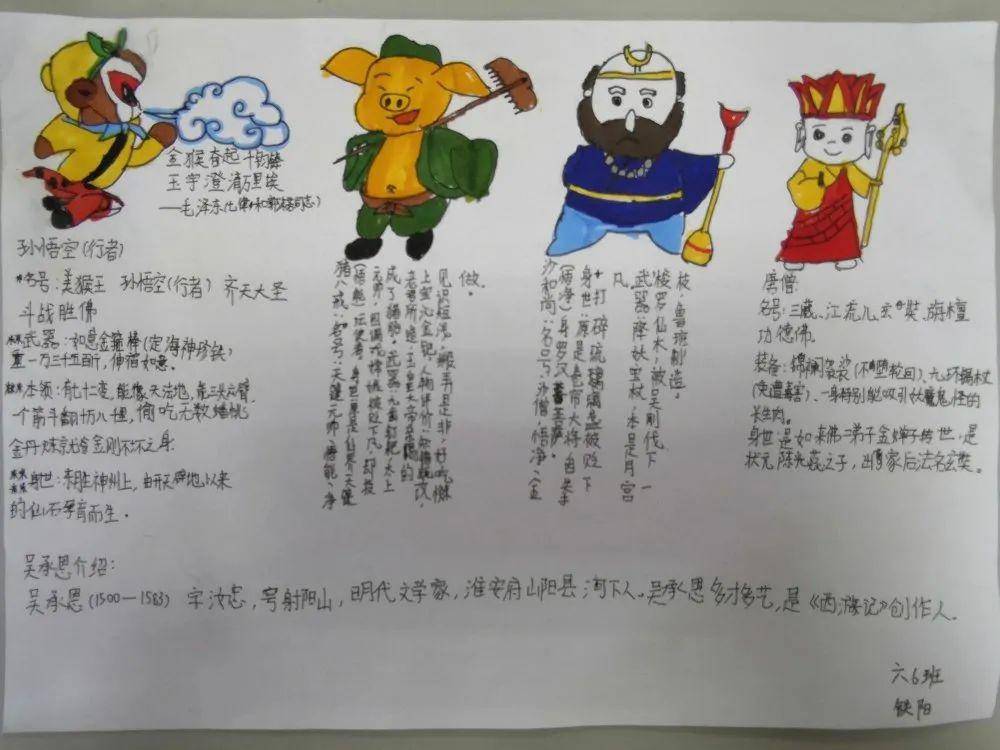 金猴奋起千钧棒
玉宇澄清万里埃
—毛泽东《七律·和郭沫若同志》
孙悟空(行者)
名号：美猴王 孙悟空(行者) 齐天大圣
斗战胜佛
武器：如意金箍棒(定海神珍铁)
重一万三千五百斤，伸缩如意。
本领：有七十二变，能像天法地，能三头六臂，
一个筋斗翻十万八千里，偷吃无数蟠桃
金丹炼就
金刚不坏之身
身世：东胜神州上，由开天辟地以来
的仙石孕育而生。
猪八戒：名号：天蓬元帅，悟能，净
(悟能)坛使者，身世：原是仙界天蓬
元帅，因调戏嫦娥被贬下凡，却投
成了猪胎。武器：九齿钉耙，太上
老君所造，玉皇大帝亲赐的
上宝沁金钯，人物评价：知错就改，
见识短浅，搬弄是非，好吃懒
做。
沙和尚：名号：沙僧，悟净，金
(悟净)身罗汉，菩萨
身世：原是玉帝大将，因失
手打碎琉璃盏被贬下
凡。
武器：降妖宝杖，本是月宫
梭罗仙木，被吴刚伐下一
枝，鲁班制造。
唐僧：
名号：三藏、江流儿、玄奘、旃檀
功德佛。
装备：锦斓袈裟(不堕轮回)、九环锡杖
(免遭毒害)、一身特别能吸引妖魔鬼怪的
长生肉。
身世：是如来佛二弟子金蝉子转世，是
状元陈光蕊之子，出家后法名玄奘。
吴承恩介绍：
吴承恩(1500—1583) 字汝忠，号射阳山，明代文学家，淮安府山阳县河下人。吴承恩多才多艺，是《西游记》创作人。
六6班